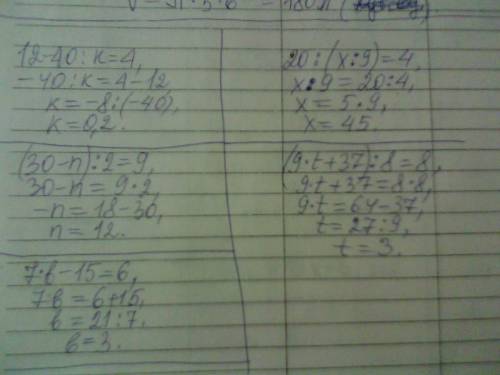 12-40:к=4,
-40:к=4-12,
к=-8:(-40),
к=0,2.
20:(х:9)=4,
х:9=20:4,
х=5·9,
х=45.
(30-n):2=9,
30-n=9·2,
-n=18-30,
n=12.
(9·t+37):8=8,
9·t+37=8·8,
9·t=64-37,
t=27:9,
t=3.
7·в-15=6,
7·в=6+15,
в=21:7.
в=3.